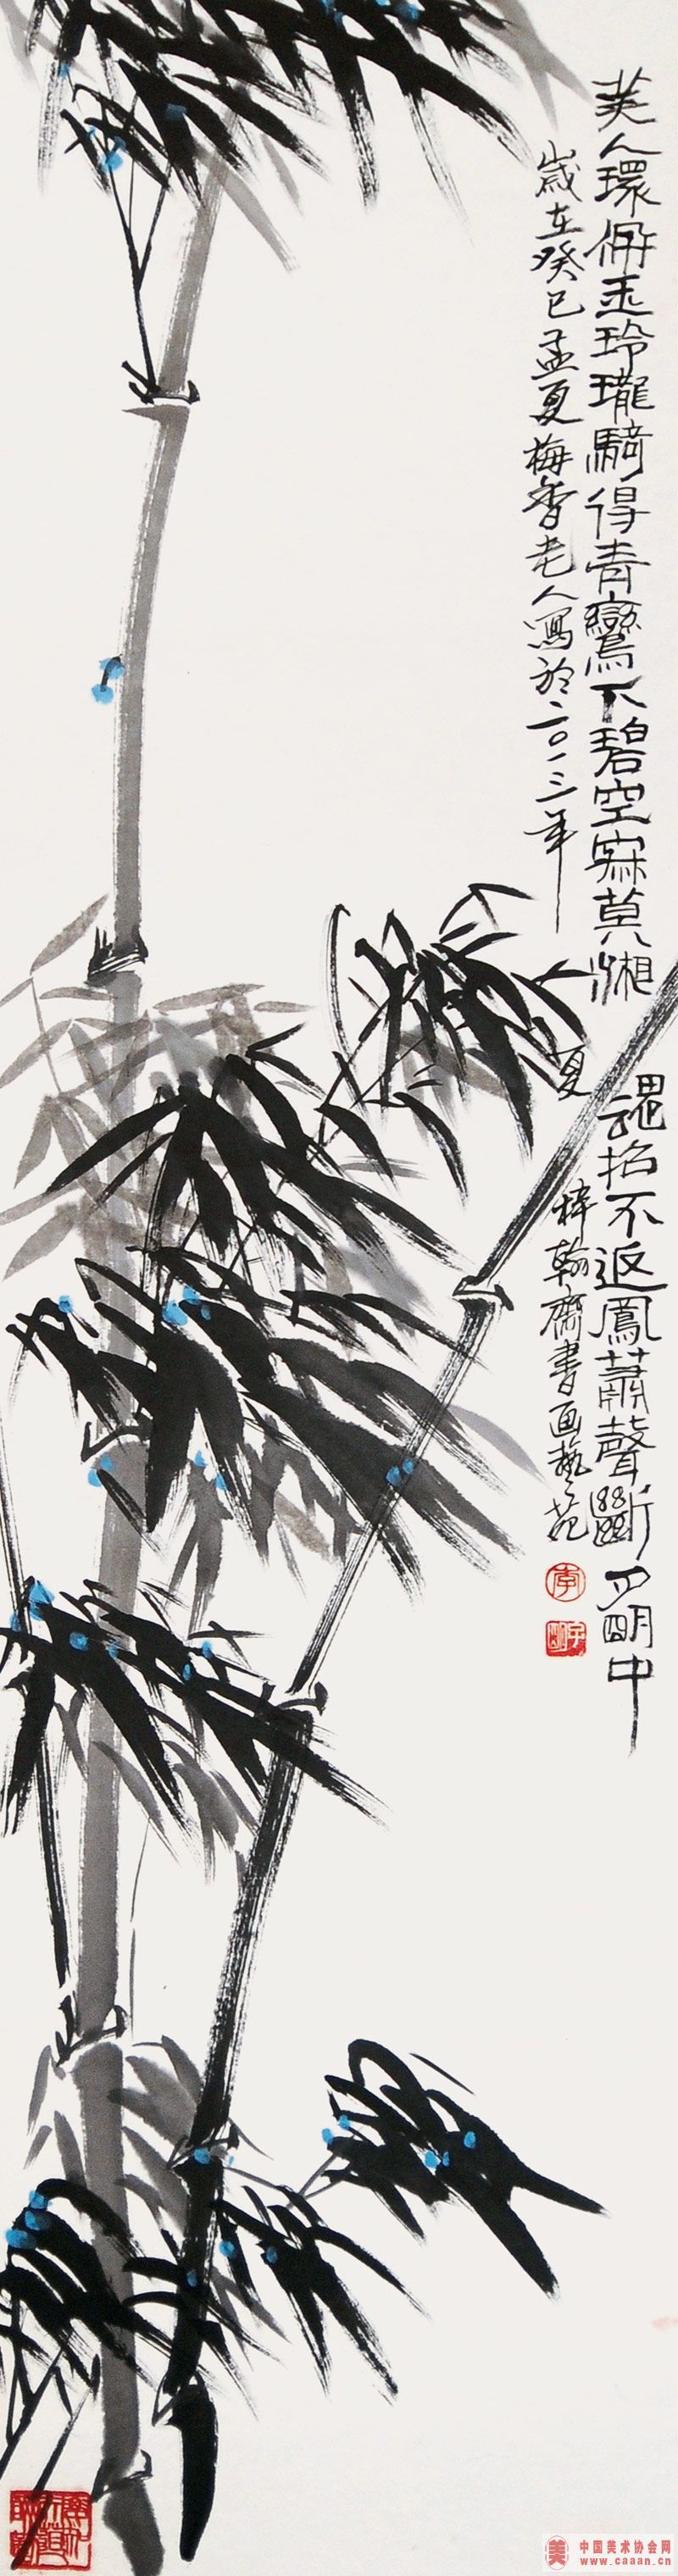 美人環佩玉玲瓏騎得青鸞下碧空寂莫湘
魂招不返鳳蕭聲斷月明中
歲在癸巳孟夏梅香老人寫於二〇一三年
夏
梓翰齋書画藝苑
中国美术协会网
www.caaan.cn